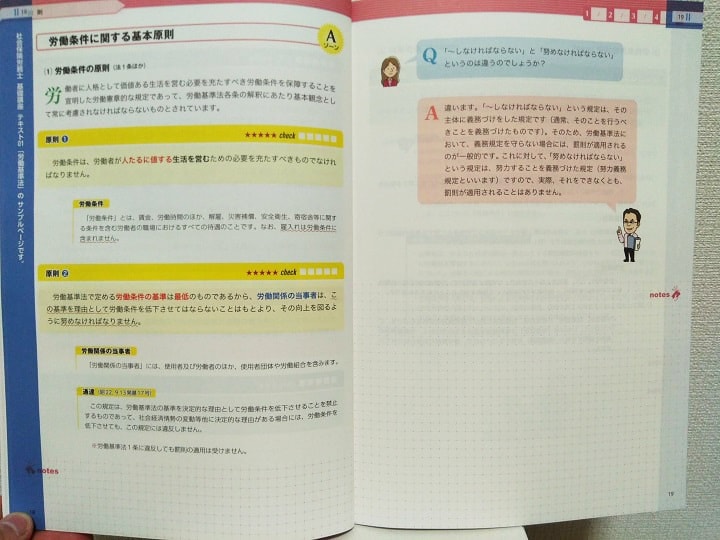 社会保険労務士 基礎講座 テキスト01「労働基準法」のサンプルページです。
労働条件に関する基本原則
Aゾーン
(1) 労働条件の原則（法1条ほか）
労働者に人格として価値ある生活を営む必要を充たすべき労働条件を保障することを
宣明した労働憲章的な規定であって、労働基準法各条の解釈にあたり基本観念とし
て常に考慮されなければならないものとされています。
原則❶
★★★★★ check
労働条件は、労働者が人たるに値する生活を営むための必要を充たすべきものでなけれ
ばなりません。
労働条件
「労働条件」とは、賃金、労働時間のほか、解雇、災害補償、安全衛生、寄宿舎等に関す
る条件を含む労働者の職場におけるすべての待遇のことです。なお、雇入れは労働条件に
含まれません。
原則❷
★★★★★ check
労働基準法で定める労働条件の基準は最低のものであるから、労働関係の当事者は、こ
の基準を理由として労働条件を低下させてはならないことはもとより、その向上を図るよ
うに努めなければなりません。
労働関係の当事者
「労働関係の当事者」には、使用者及び労働者のほか、使用者団体や労働組合を含みます。
通達（昭22.9.13発基17号）
この規定は、労働基準法の基準を決定的な理由として労働条件を低下させることを禁止
するものであって、社会経済情勢の変動等他に決定的な理由がある場合には、労働条件を
低下させても、この規定には違反しません。
※労働基準法1条に違反しても罰則の適用は受けません。
notes
1 2 3 4
19
Q 「～しなければならない」と「努めなければならない」
というのは違うのでしょうか？
A 違います。「～しなければならない」という規定は、その
主体に義務づけをした規定です（通常、そのことを行うべ
きことを義務づけたものです）。そのため、労働基準法に
おいて、義務規定を守らない場合には、罰則が適用される
のが一般的です。これに対して、「努めなければならない」
という規定は、努力することを義務づけた規定（努力義務
規定といいます）ですので、実際、それをできなくとも、
罰則が適用されることはありません。
notes
19